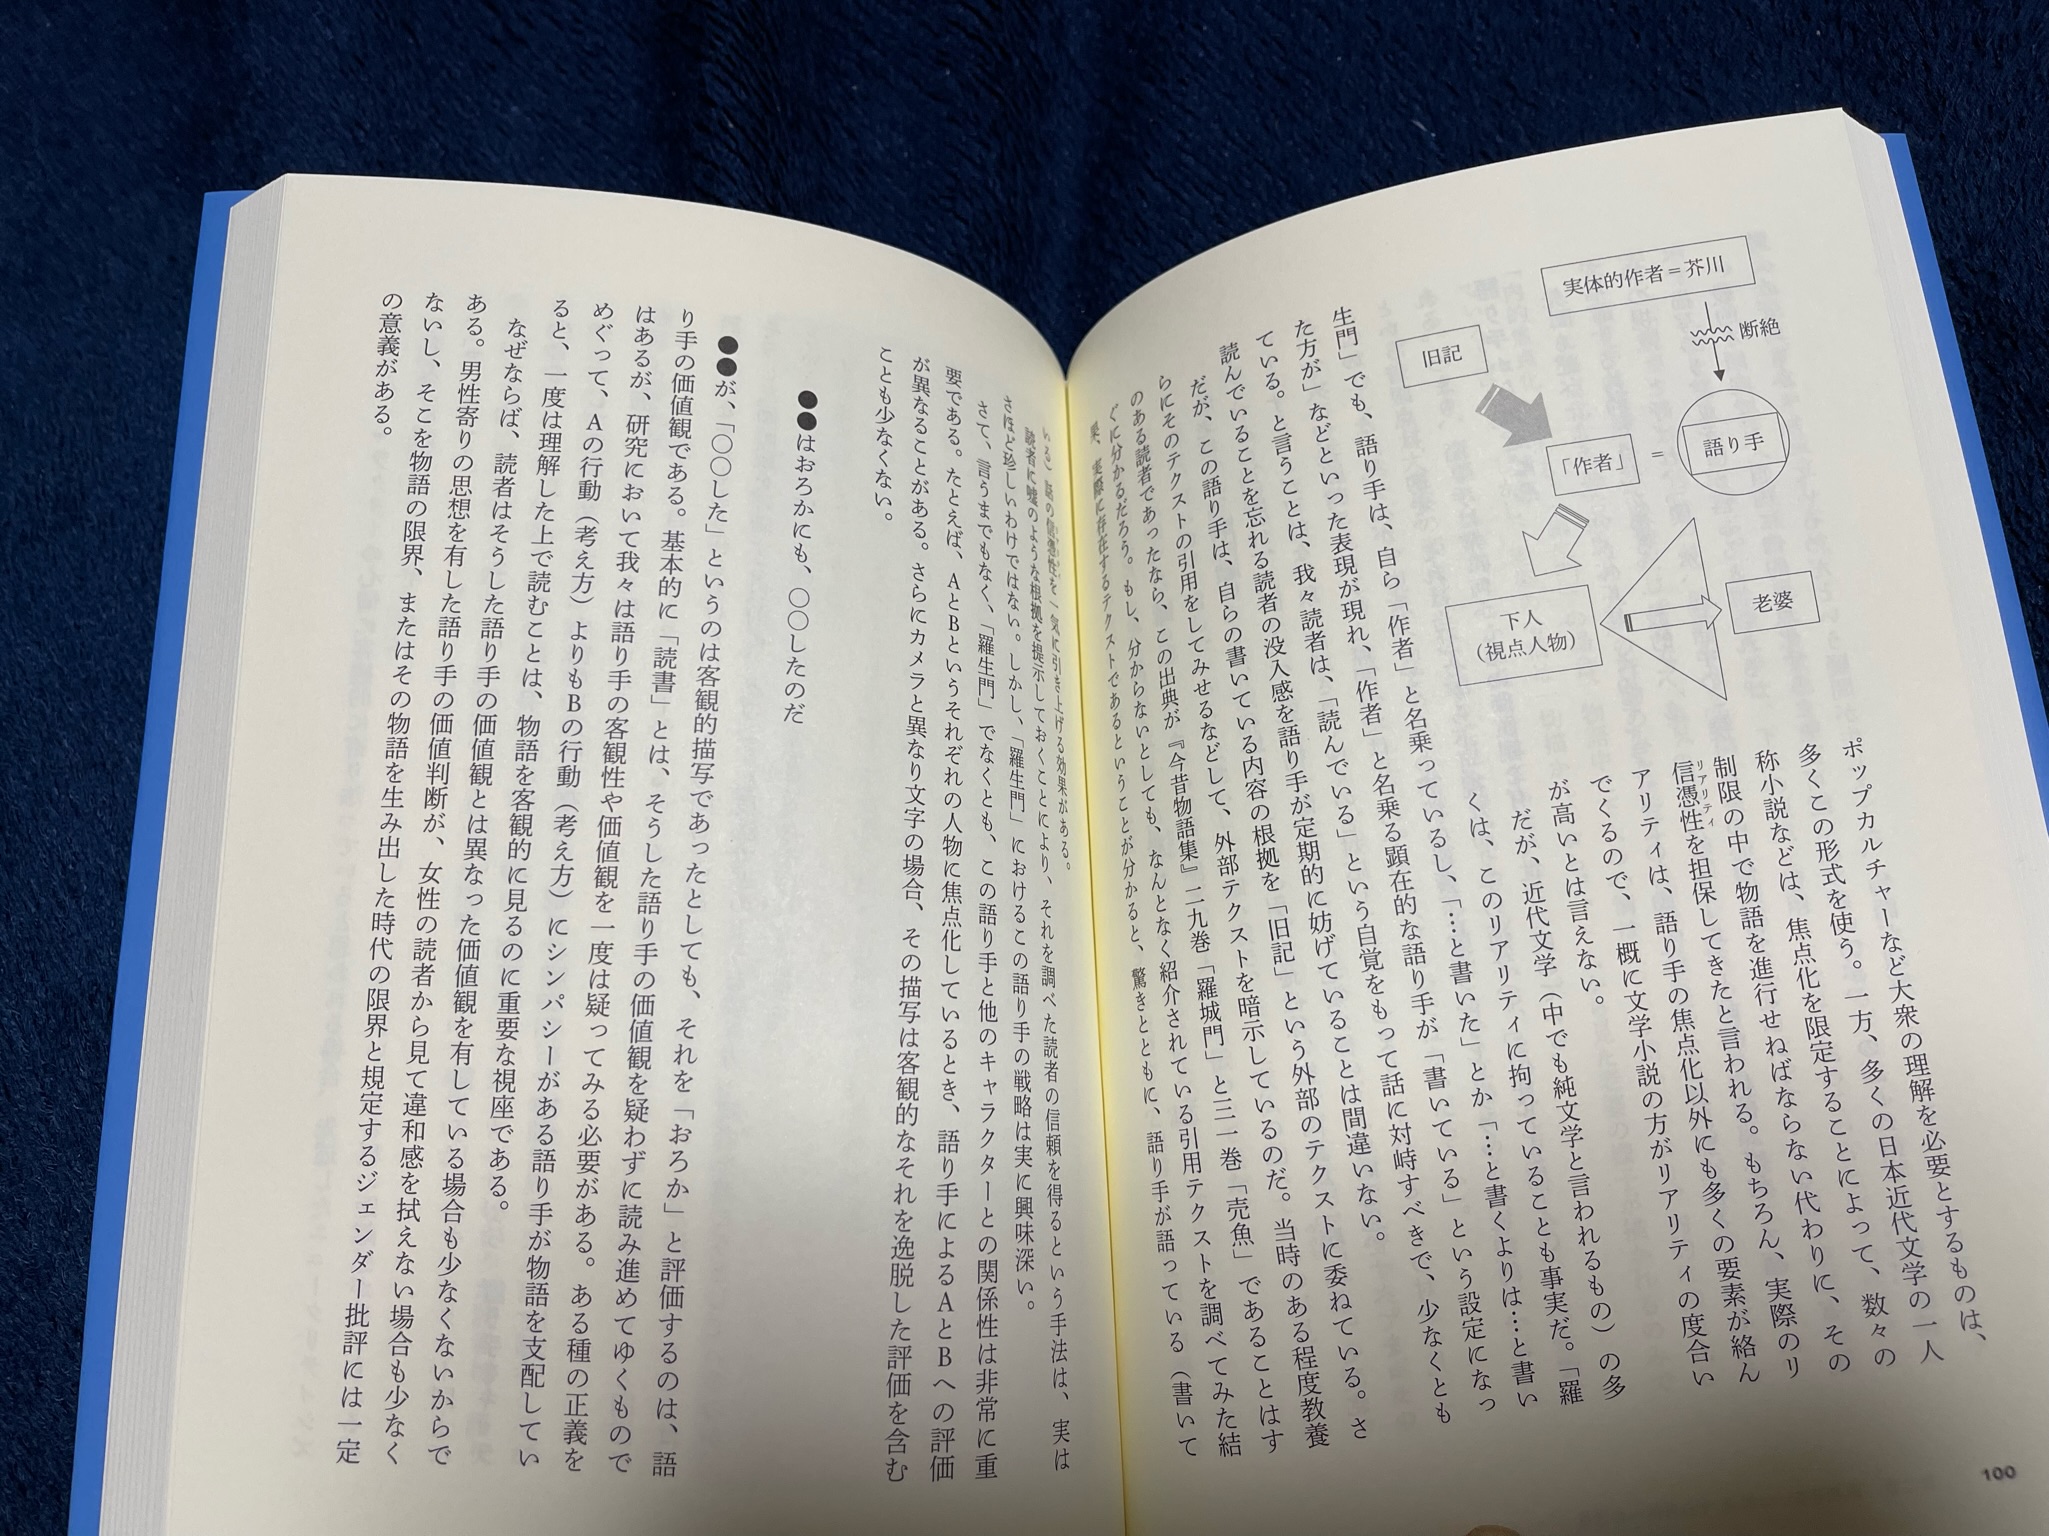 実体的作者＝芥川
断絶
語り手
＝
「作者」
旧記
下人
（視点人物）
老婆
ポップカルチャーなど大衆の理解を必要とするものは、
多くこの形式を使う。一方、多くの日本近代文学の一人
称小説などは、焦点化を限定することによって、数々の
制限の中で物語を進行せねばならない代わりに、その
信憑性を担保してきたと言われる。もちろん、実際のリ
リアリティ
アリティは、語り手の焦点化以外にも多くの要素が絡ん
でくるので、一概に文学小説の方がリアリティの度合い
が高いとは言えない。
だが、近代文学（中でも純文学と言われるもの）の多
くは、このリアリティに拘っていることも事実だ。「羅
生門」でも、語り手は、自ら「作者」と名乗っているし、「…と書いた」とか「…と書くよりは…と書い
た方が」などといった表現が現れ、「作者」と名乗る顕在的な語り手が「書いている」という設定になっ
ている。と言うことは、我々読者は、「読んでいる」という自覚をもって話に対峙すべきで、少なくとも
読んでいることを忘れる読者の没入感を語り手が定期的に妨げていることは間違いない。
だが、この語り手は、自らの書いている内容の根拠を「旧記」という外部のテクストに委ねている。さ
らにそのテクストの引用をしてみせるなどして、外部テクストを暗示しているのだ。当時のある程度教養
のある読者であったなら、この出典が『今昔物語集』二九巻「羅城門」と三一巻「売魚」であることはす
ぐに分かるだろう。もし、分からないとしても、なんとなく紹介されている引用テクストを調べてみた結
果、実際に存在するテクストであるということが分かると、驚きとともに、語り手が語っている（書いて
100
いる）話の信憑性を一気に引き上げる効果がある。
読者に嘘のような根拠を提示しておくことにより、それを調べた読者の信頼を得るという手法は、実は
さほど珍しいわけではない。しかし、「羅生門」におけるこの語り手の戦略は実に興味深い。
さて、言うまでもなく、「羅生門」でなくとも、この語り手と他のキャラクターとの関係性は非常に重
要である。たとえば、AとBというそれぞれの人物に焦点化しているとき、語り手によるAとBへの評価
が異なることがある。さらにカメラと異なり文字の場合、その描写は客観的なそれを逸脱した評価を含む
ことも少なくない。
●●はおろかにも、○○したのだ
●●が、「○○した」というのは客観的描写であったとしても、それを「おろか」と評価するのは、語
り手の価値観である。基本的に「読書」とは、そうした語り手の価値観を疑わずに読み進めてゆくもので
はあるが、研究において我々は語り手の客観性や価値観を一度は疑ってみる必要がある。ある種の正義を
めぐって、Aの行動（考え方）よりもBの行動（考え方）にシンパシーがある語り手が物語を支配してい
ると、一度は理解した上で読むことは、物語を客観的に見るのに重要な視座である。
なぜならば、読者はそうした語り手の価値観とは異なった価値観を有している場合も少なくないからで
ある。男性寄りの思想を有した語り手の価値判断が、女性の読者から見て違和感を拭えない場合も少なく
ないし、そこを物語の限界、またはその物語を生み出した時代の限界と規定するジェンダー批評には一定
の意義がある。